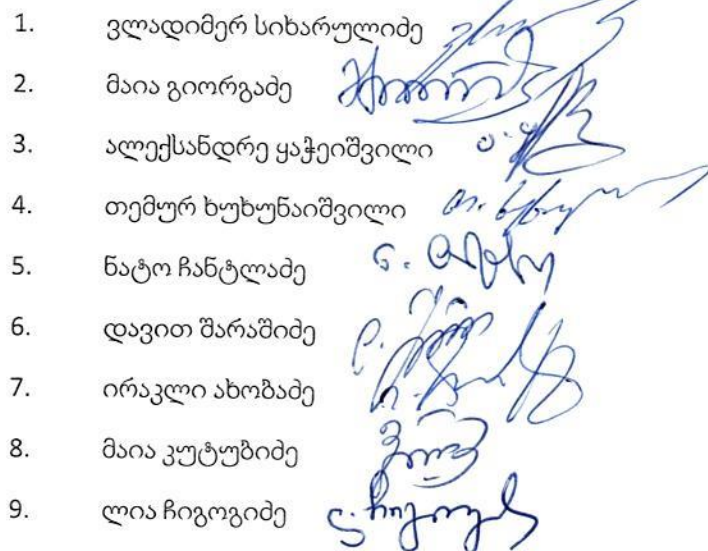 1. ვლადიმერ სიხარულიძე
2. მაია გიორგაძე
3. ალექსანდრე ყაჭეიშვილი
4. თემურ ხუხუნაიშვილი
5. ნატო ჩანტლაძე
6. დავით შარაშიძე
7. ირაკლი ახობაძე
8. მაია კუტუბიძე
9. ლია ჩიგოგიძე